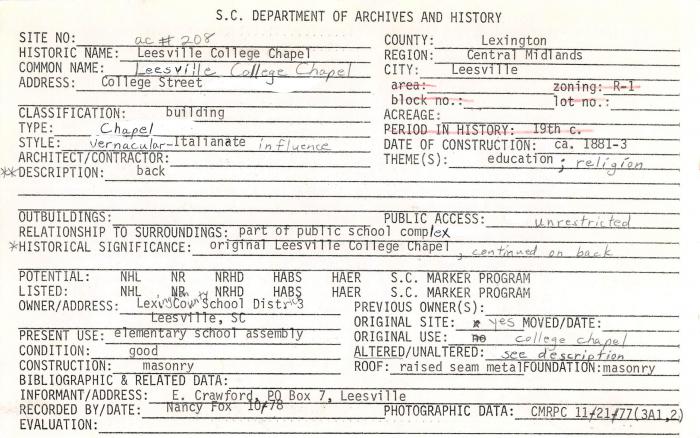 S.C. DEPARTMENT OF ARCHIVES AND HISTORY
SITE NO: ac # 208
COUNTY: Lexington
HISTORIC NAME: Leesville College Chapel
REGION: Central Midlands
COMMON NAME: Leesville College Chapel
CITY: Leesville
ADDRESS: College Street
area: zoning: R-1
block no.: lot no.:
CLASSIFICATION: building
ACREAGE:
TYPE: Chapel
PERIOD IN HISTORY: 19th c.
STYLE: Vernacular-Italianate influence
DATE OF CONSTRUCTION: ca. 1881-3
ARCHITECT/CONTRACTOR:
THEME(S): education; religion
**DESCRIPTION: back
OUTBUILDINGS:
PUBLIC ACCESS: unrestricted
RELATIONSHIP TO SURROUNDINGS: part of public school complex
*HISTORICAL SIGNIFICANCE: original Leesville College Chapel, continued on back
POTENTIAL: NHL NR NRHD HABS HAER S.C. MARKER PROGRAM
LISTED: NHL NR NRHD HABS HAER S.C. MARKER PROGRAM
OWNER/ADDRESS: School District 3
PREVIOUS OWNER(S):
Leesville, SC
ORIGINAL SITE: yes MOVED/DATE:
PRESENT USE: elementary school assembly
ORIGINAL USE: college chapel
CONDITION: good
ALTERED/UNALTERED: see description
CONSTRUCTION: masonry
ROOF: raised seam metal FOUNDATION: masonry
BIBLIOGRAPHIC & RELATED DATA:
INFORMANT/ADDRESS: E. Crawford, PO Box 7, Leesville
RECORDED BY/DATE: Nancy Fox 10/78
PHOTOGRAPHIC DATA: CMRPC 11/21/77(3A1,2)
EVALUATION: